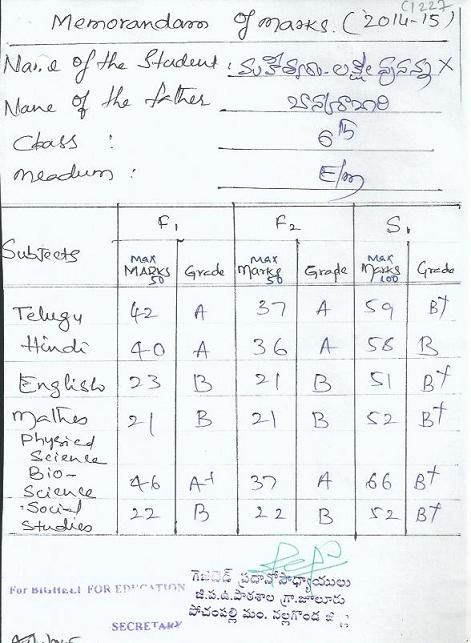 C1227
Memorandam of marks. (2014-15)
Name of the Student : మహేశ్వరం. లక్ష్మీ ప్రసన్న X
Name of the father
Class : 6th
Meadum : E/m
Subjects F1 F2 S1
Max Marks 50 Grade Max Marks 50 Grade Max Marks 100 Grade
Telugu 42 A 37 A 59 B+
Hindi 40 A 36 A 58 B
English 23 B 21 B 51 B+
Mathes 21 B 21 B 52 B+
Physical
Science
Bio-
Science 46 A+ 37 A 66 B+
Social
Studies 22 B 22 B 52 B+
గెజిటెడ్ ప్రధానోపాధ్యాయులు
For BIGHELP FOR EDUCATION
జి.ప.ఉ.పాఠశాల గ్రా.జాలూరు
పోచంపల్లి మం. నల్లగొండ జిల్లా
SECRETARY